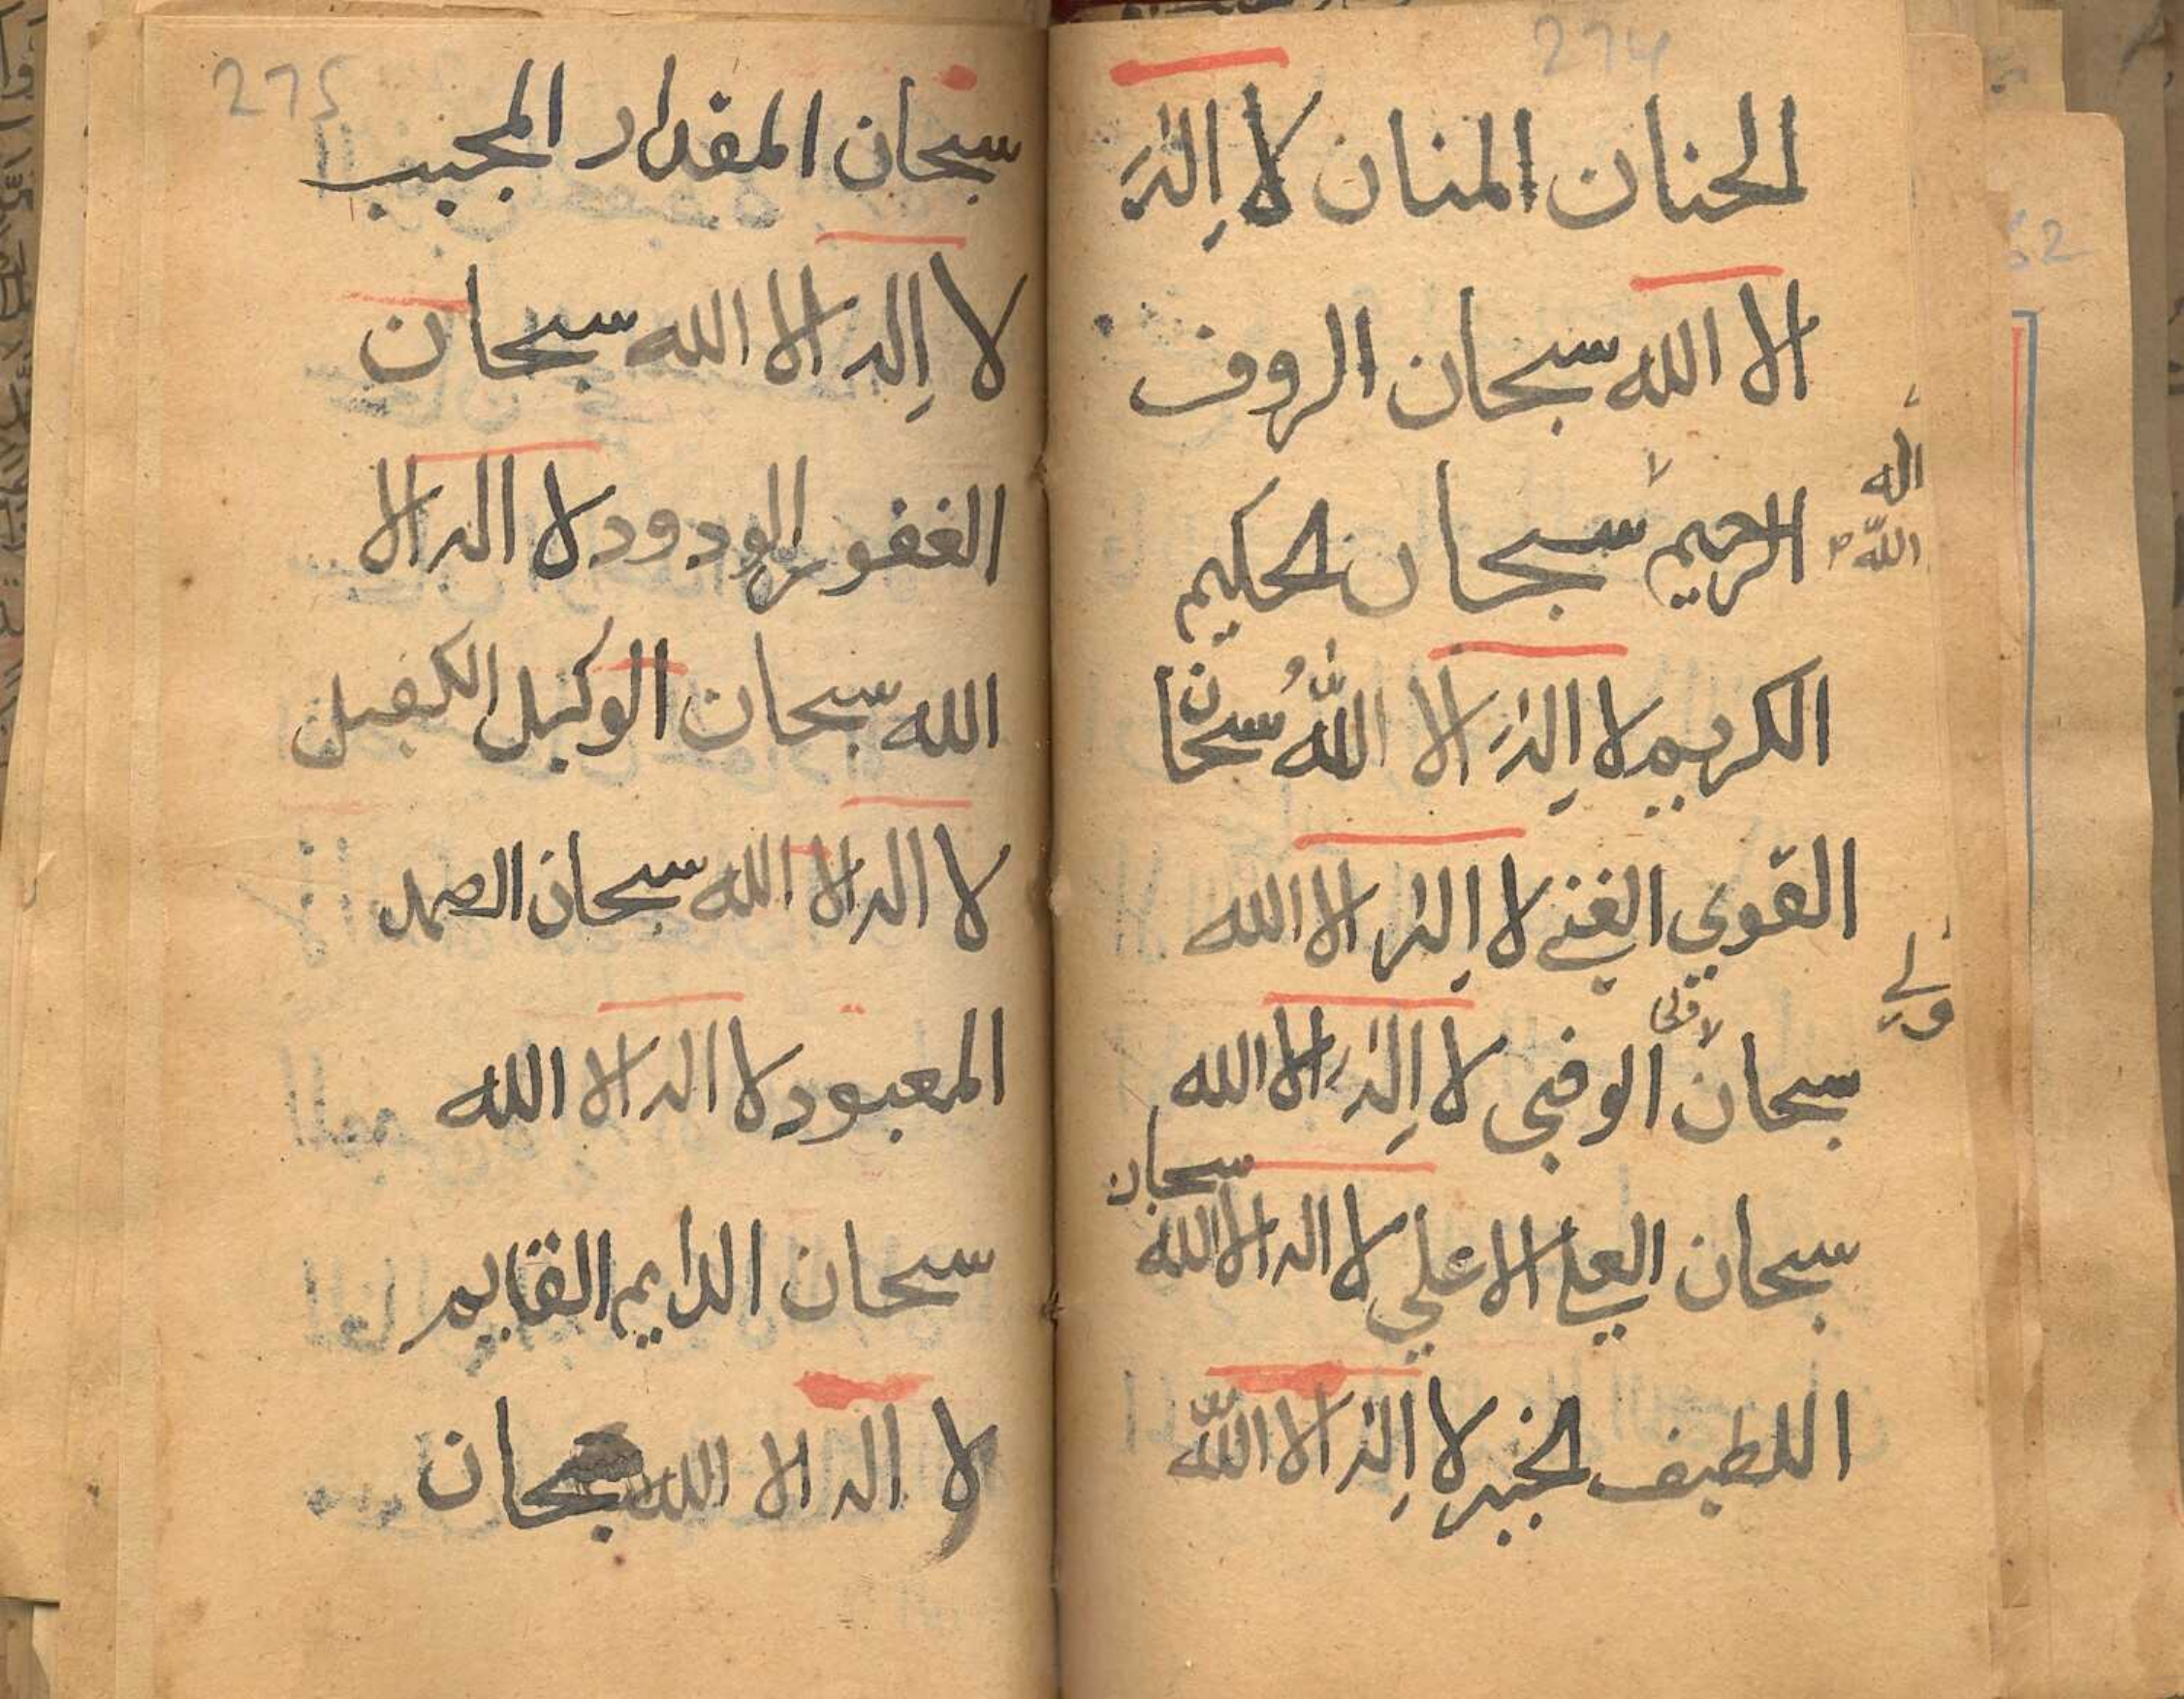 274
الحنان المنان لا اله
الا الله سبحان الروف
الرحيم سبحان الحكيم
اله
الله
الكريم لا اله الا الله سبحان
القوي الغني لا اله الا الله
سبحان الوفى لا اله الا الله
سبحان العلي الاعلي لا اله الا الله
سبحان
اللطيف الخبير لا اله الا الله
275
سبحان المقدار المجيب
لا اله الا الله سبحان
الغفور الودود لا اله الا
الله سبحان الوكيل الكفيل
لا اله الا الله سبحان الصمد
المعبود لا اله الا الله
سبحان الدايم القايم
لا اله الا الله سبحان